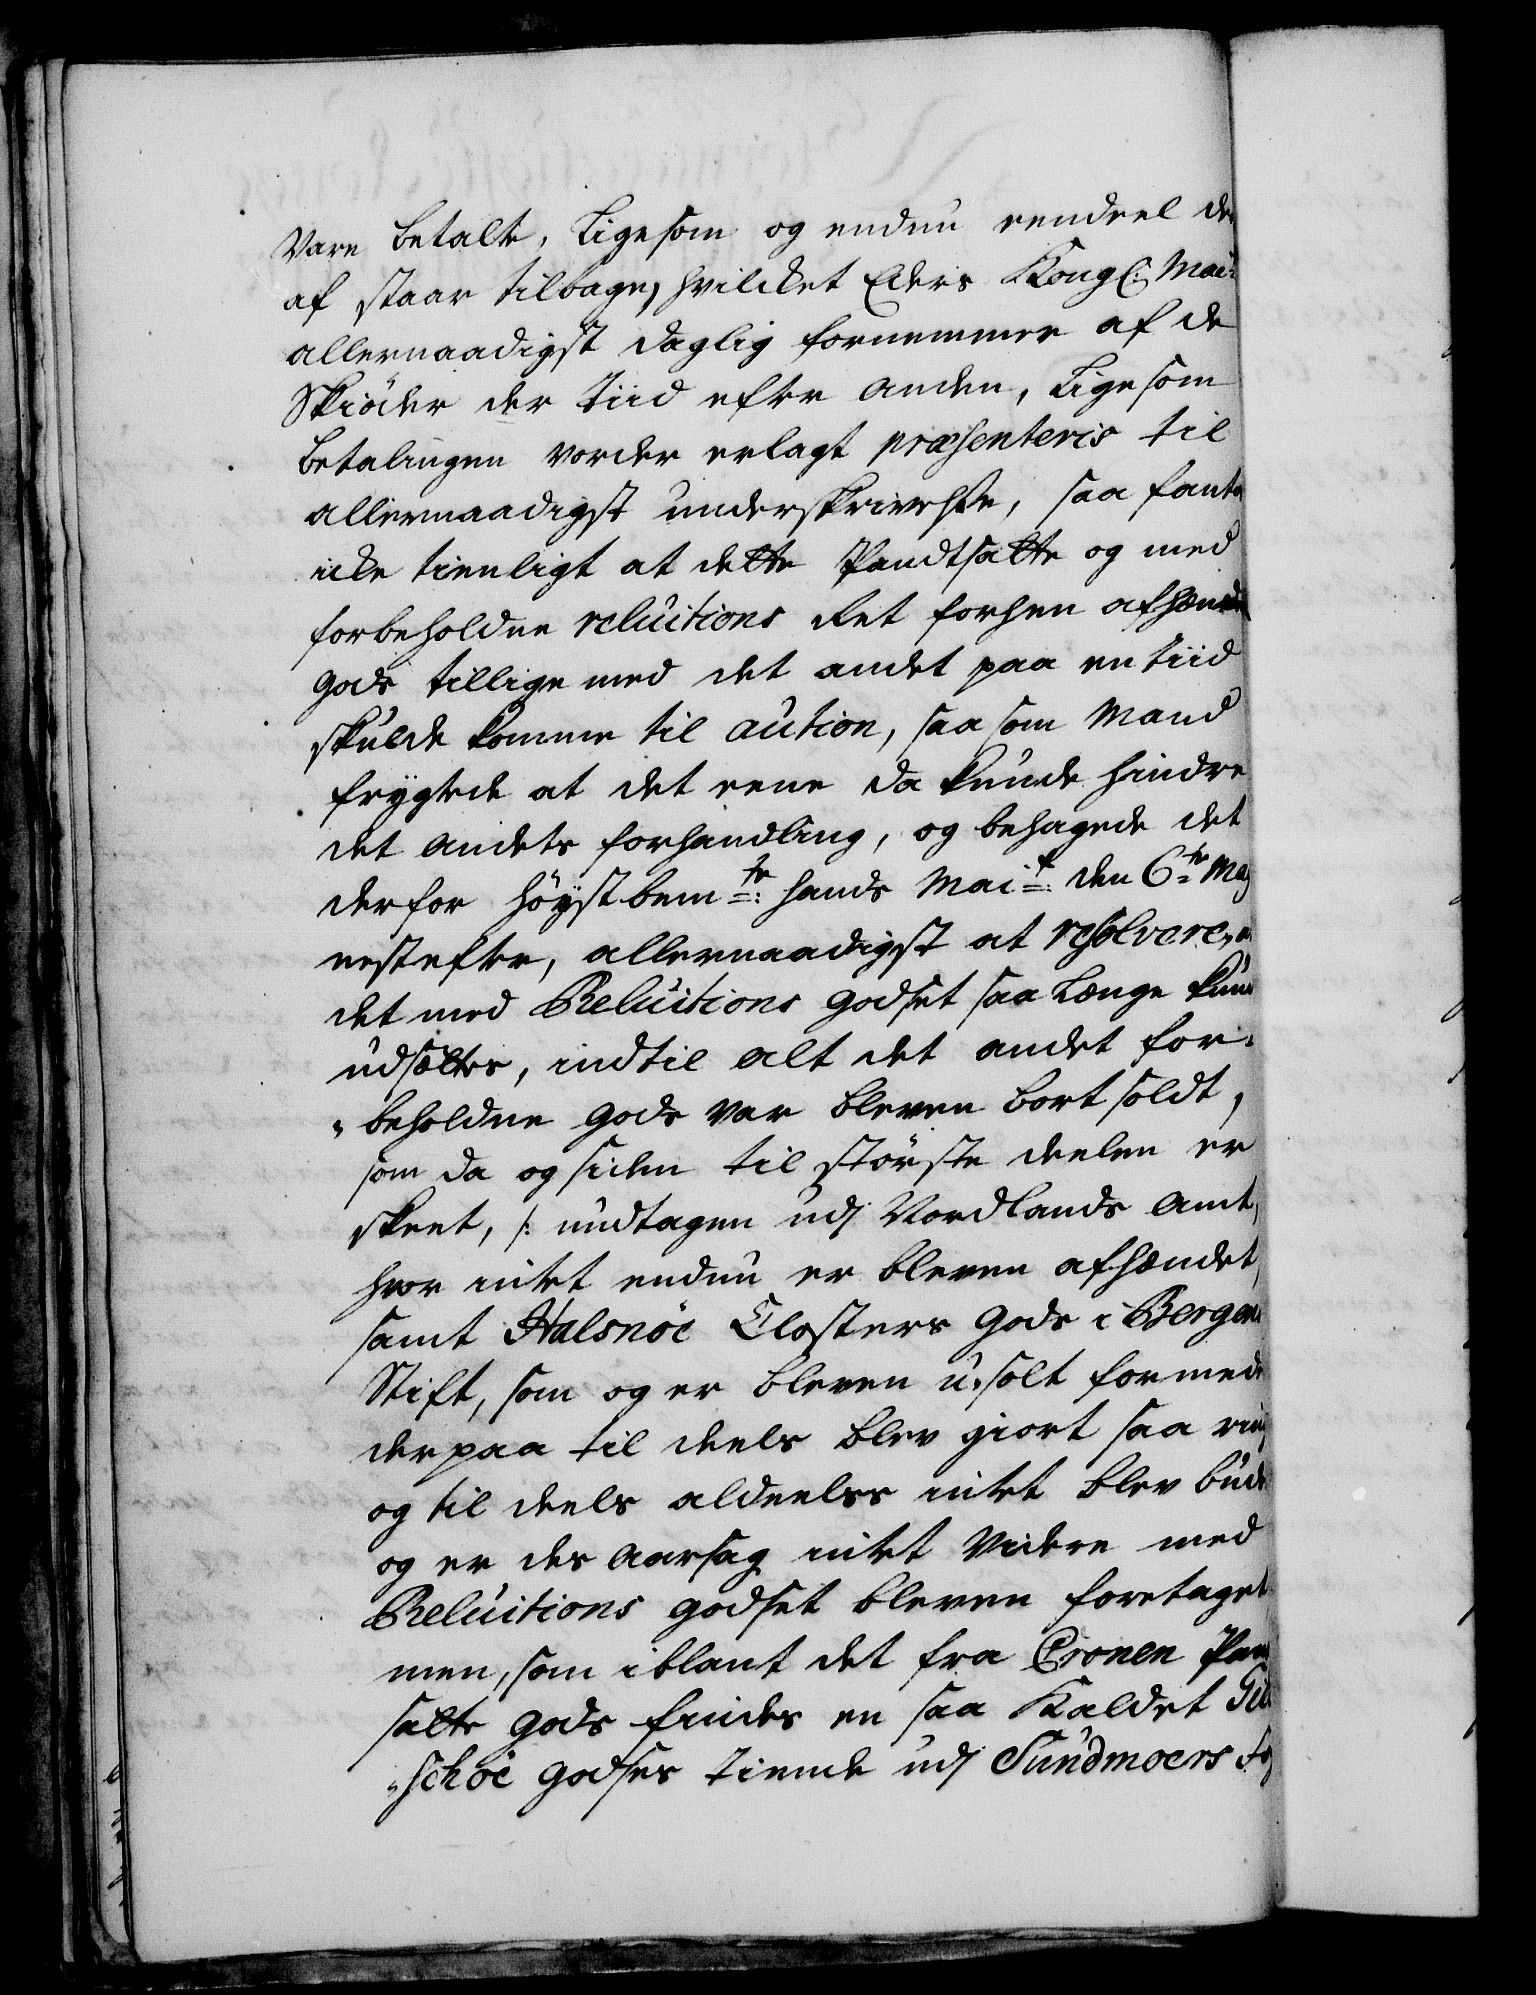 Vare betalte, Ligesom og endnu eendeel der
af staar tilbage, hvilcket Eders Kongl: Mai:t
allernaadigst daglig fornemmer af de
Skiöder der tiid efter anden, Ligesom
betalingen vorder erlagt præsenteris til
allernaadigst underskrivelse, saa fantes
icke tienligt at dette Pandtsatte og med
forbeholden reluitions Ret forhen afhænde
Gods tillige med det andet paa en tiid
skulde komme til aution, saa som Mand
frygtede at det eene da kunde hindre
det andets forhandling, og behagede det
derfor höystbem:te hands Mai:t den 6:te May
nestefter, allernaadigst at resolvere, at
det med Reluitions Godset saa Længe kunde
udsættes, indtil alt det andet for-
„beholdne Gods var bleven bortsoldt,
som da og siden til störste deelen er
skeet, /: undtagen udj Nordlands Amt,
hvor intet endnu er bleven afhændet,
samt Halsnöe Closters Gods i Bergens
Stift, som og er bleven u-solt formedelst
der paa til deels blev giort saa ring
og til deels aldeeles intet blev bud
og er des Aarsag intet videre med
Reluitions godset bleven foretaget
men, som iblant det fra Cronen Pant
satte Gods findes en saa Kaldet Gi
„schöe Godses Tiende udj Sundmoers Fog